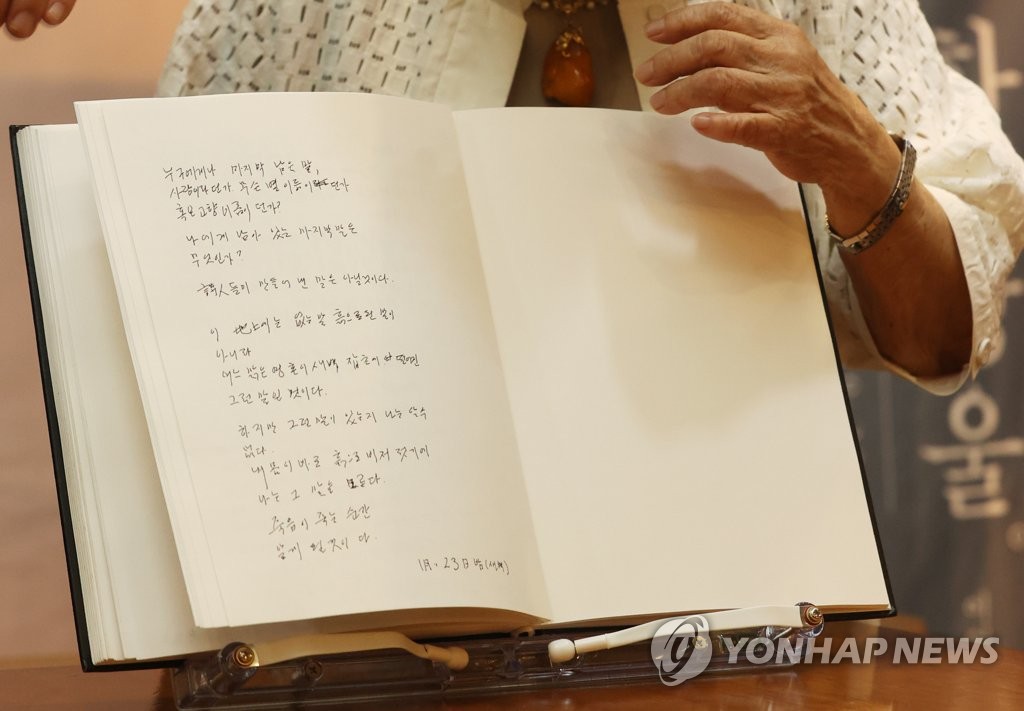 누구에게나 마지막 남은 말,
사랑이라던가 무슨 별 이름이던가
혹은 고향 이름이던가?
나에게 남아 있는 마지막 말은
무엇인가?
詩人들이 만들어 낸 말은 아닐것이다.
이 地上에는 없는 말 흙으로된 말이
아니라
어느 맑은 영혼이 새벽 잡초에 떨어진
그런 말일 것이다.
하지만 그런 말이 있는지 나는 알수
없다.
내 몸이 바로 흙으로 비저 젓기에
나는 그 말을 모른다.
죽음이 죽는 순간
알게 될 것이다.
1月. 23日 밤(새벽)
울
YONHAP NEWS